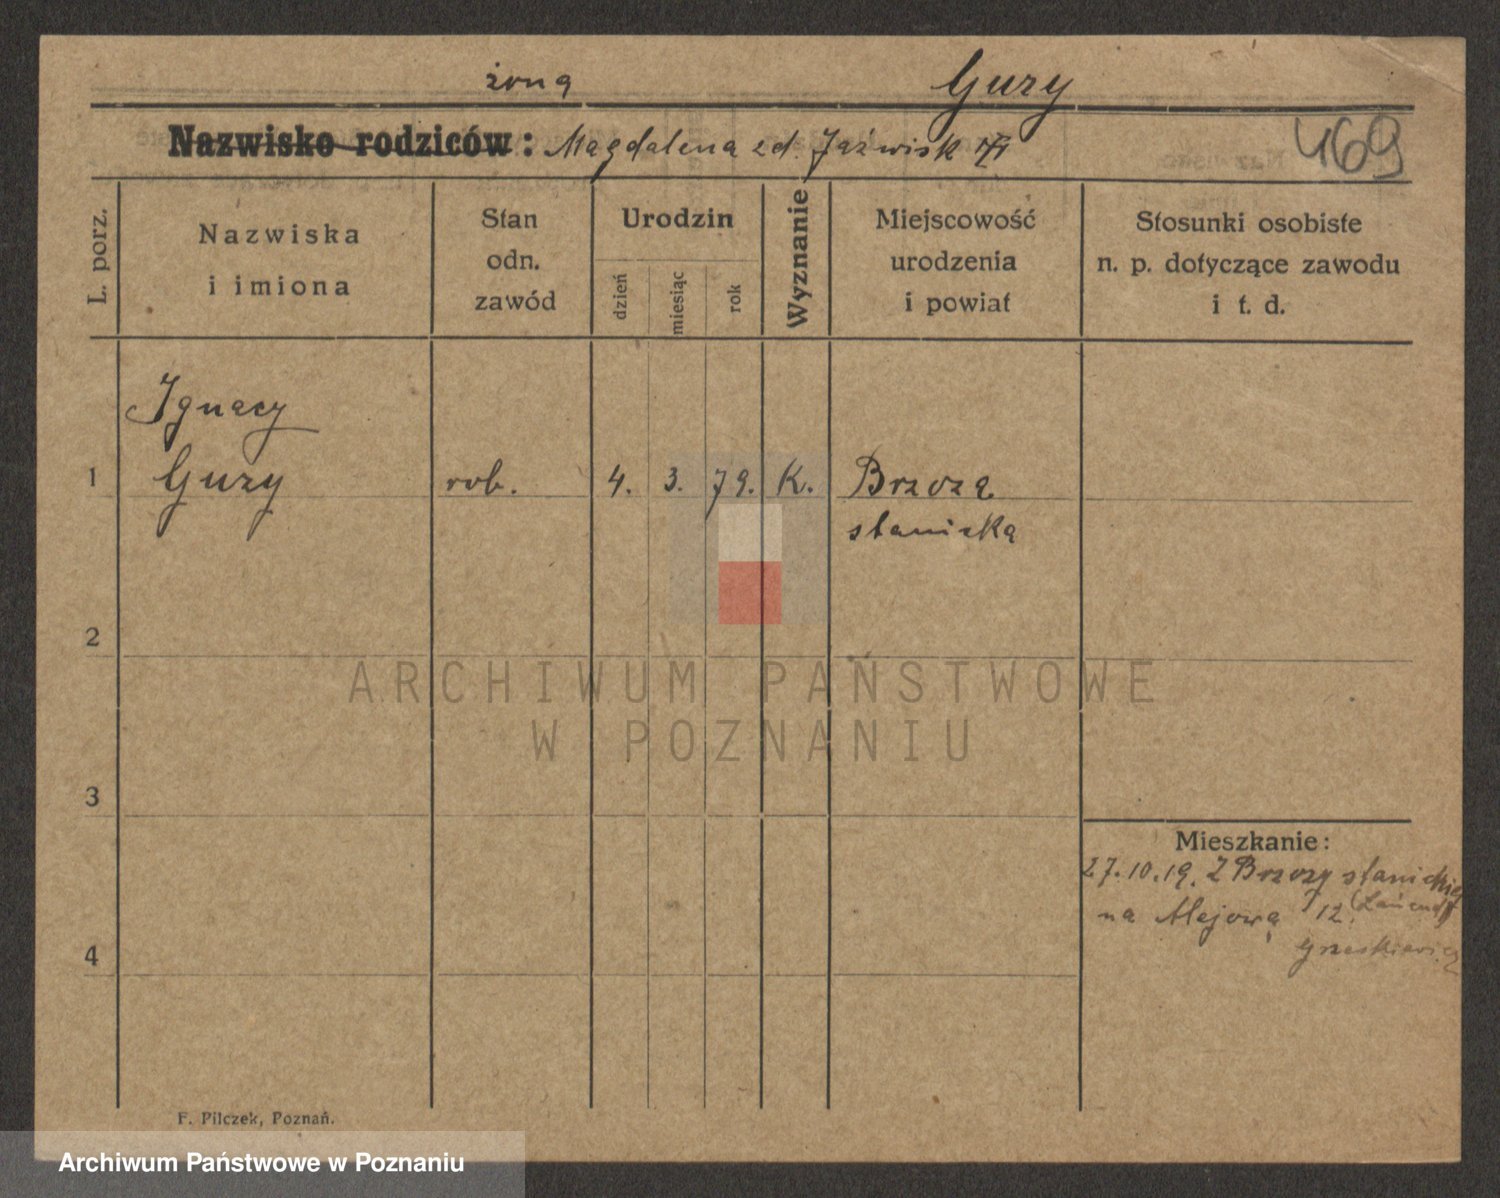 żona Gury
Nazwisko rodziców: Magdalena zd. Jaźwisk
469
L. porz.
Nazwiska
i imiona
Stan
odn.
zawód
Urodzin
dzień
miesiąc
rok
Wyznanie
Miejscowość
urodzenia
i powiat
Stosunki osobiste
n. p. dotyczące zawodu
i t. d.
Ignacy
1 Gury rob. 4. 3. 79. K. Brzoza
stanicka
2
ARCHIWUM PAŃSTWOWE
W POZNANIU
3
Mieszkanie:
27.10.19. Z Brzozy stanickiej
na Alejową 12.
4
F. Pilczek, Poznań.
Archiwum Państwowe w Poznaniu